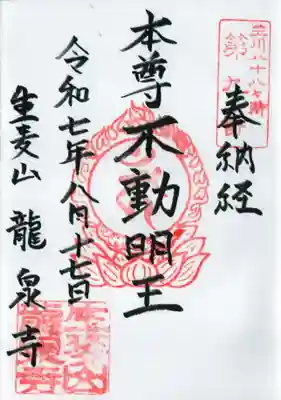 奉納経
本尊不動明王
令和七年八月十七日
生麦山 龍泉寺